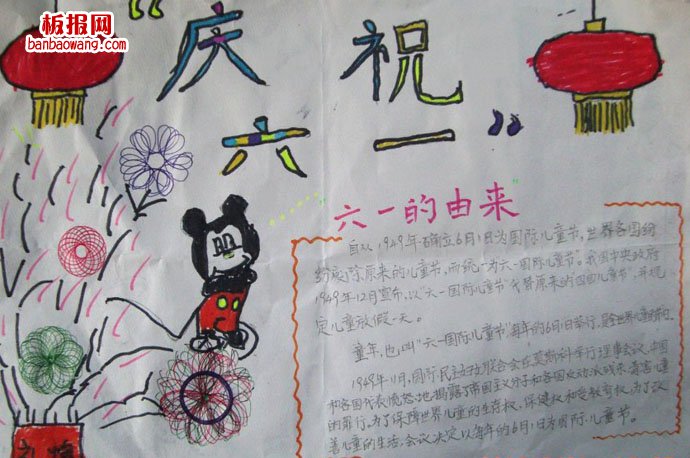 板报网
banbaowang.com
庆 祝
“六一”
六一的由来
自从1949年确立6月1日为国际儿童节,世界各国纷
纷废除原来的儿童节,而统一为六一国际儿童节。我国中央政府
1949年12月宣布,以“六一国际儿童节”代替原来的四四儿童节”并规
定儿童放假一天。
童年,也叫“六一国际儿童节”每年的6月1日举行,是全世界儿童的节日
1949年11月,国际民主妇联合会在莫斯科举行理事会议,中国
和各国代表愤怒地揭露了帝国主义分子和各国反动派残杀、毒害儿童
的罪行。为了保障世界儿童的生存权、保健权和受教育权,为了改
善儿童的生活,会议决定以每年的6月1日为国际儿童节。